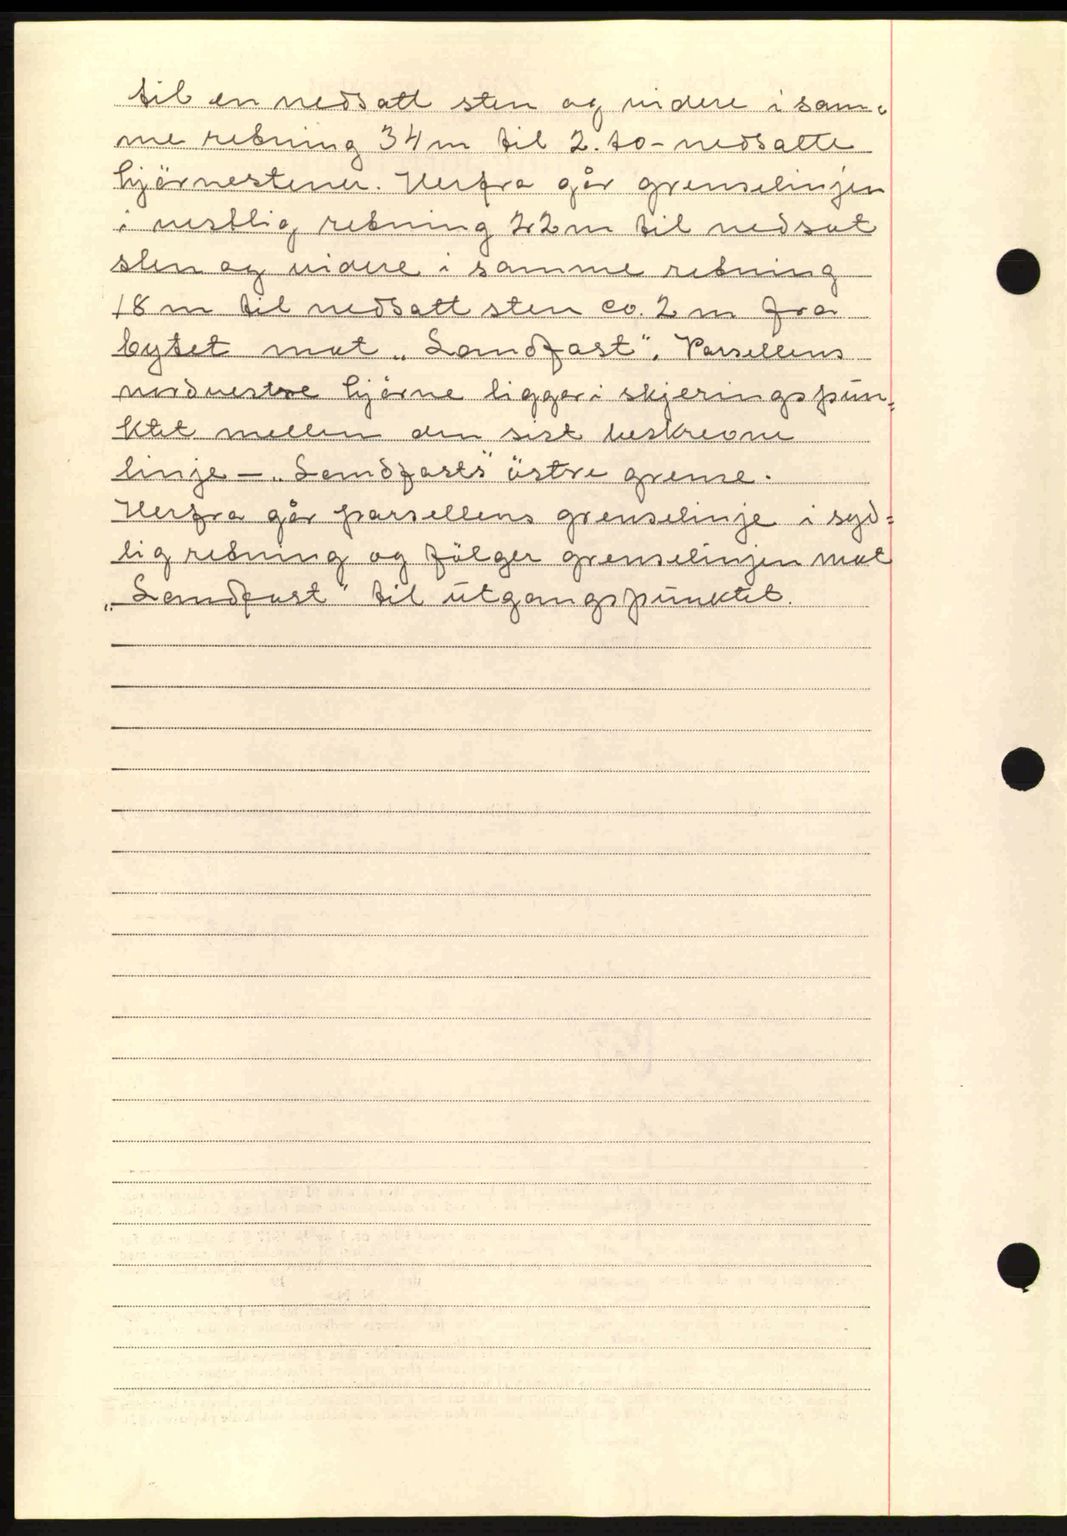 til en nedsatt sten og videre i sam-
me retning 34 m til 2. to- nedsatte
hjörnestener. Herfra går grenselinjen
i vestlig retning 22 m til nedsat
sten og videre i samme retning
18 m til nedsatt sten co. 2 m fra
bytet mot „Landfast". Parsellens
nordvestre hjörne ligger i skjeringspun-
ktet mellem den sist beskrevne
linje — „Landfasts" östre grense.
Herfra går parsellens grenselinje i syd-
lig retning og fölger grenselinjen mot
„Landfast" til utgangspunktet.